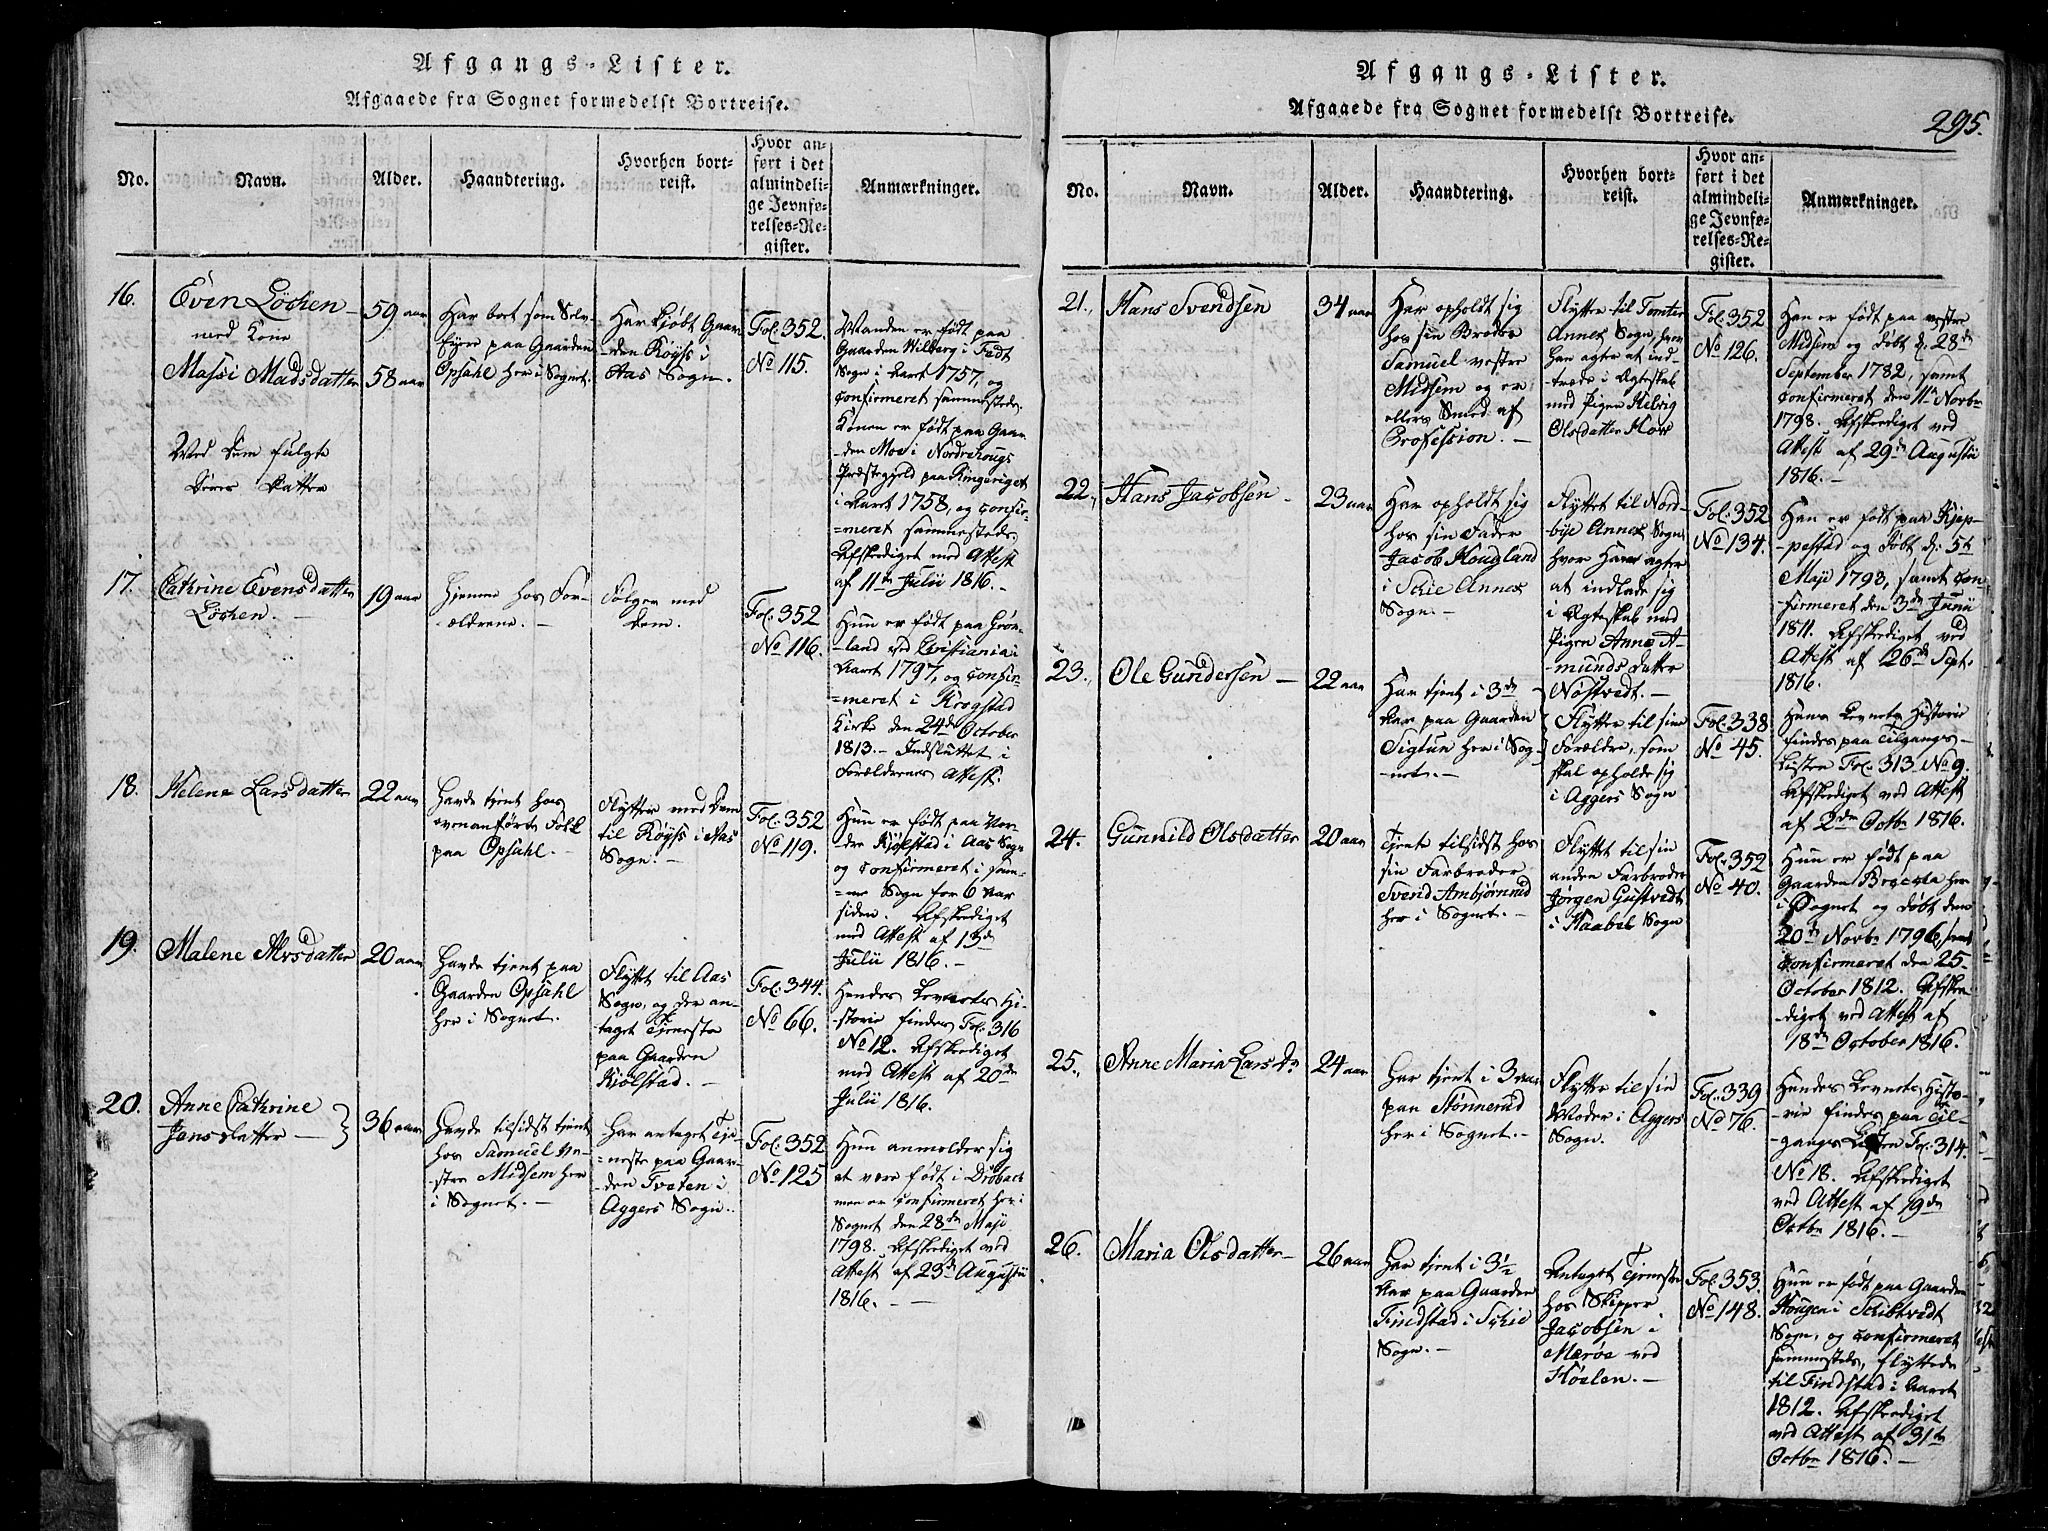 Afgangs-Lister.
Afgaaede fra Sognet formedelst Bortreise.
No.
Navn.
Alder.
Haandtering.
Hvorhen bort-
reist.
Hvor an-
ført i det
almindeli-
ge Jevnfø-
relses-Re-
gister.
Anmærkninger.
16.
Even Löchen
med Kone
Massi Madsdatter
Med dem fulgte
deres Datter
59 aar
58 aar
Har boet som Selv-
Eyere paa Gaarden
Opsahl her i Sognet.
Har kjöbt Gaar-
den Röyss i
Aas Sogn.
Fol. 352.
No 115.
Manden er födt paa
Gaarden Wilberg i Fedt
Sogn i Aaret 1757, og
confirmeret sammesteds.
Konen er födt paa Gaar-
den Moe i Nordrehougs
Præstegjeld paa Ringeriget
i Aaret 1758, og confir-
=meret sammesteds
Afskediget med Attest
af 11te Julii 1816. -
17.
Cathrine Evensdatter
Löchen. -
19 aar
Hjemme hos For-
ældrene. -
Fölger med
dem.
Fol. 352
No 116.
Hun er födt paa Grön-
-land ved Christiania i
Aaret 1797, og confir-
=meret i Krogstad
Kirke den 24de October
1813. - Indsluttet i
Forældrenes Attest.
18.
Helene Larsdatter
22 aar
Havde tjent hos
ovenanförte Folk
paa Opsahl. -
Flytter med dem
til Röyss i Aas
Sogn. -
Fol. 352
No 119.
Hun er födt paa Ner-
dre Kjölstad i Aas Sogn
og confirmeret i sam-
=me Sogn for 6 aar
siden. Afskediget
med Attest af 13de
Julii 1816. -
19.
Malene Alvsdatter
20 aar
Havde tjent paa
Gaarden Opsahl
her i Sognet.
Flyttet til Aas
Sogn, og der an-
taget Tjeneste
paa Gaarden
Kiölstad. -
Fol. 344.
No 66.
Hendes Levnets Hi-
-storie findes Fol. 316
No 12. Afskediget
med Attest af 20de
Julii 1816.
20.
Anne Cathrine
Jensdatter -
36 aar
Havde tilsidst tjent
hos Samuel ve-
stre Midsem her
i Sognet. -
Har antaget Tje-
=neste paa Gaar-
den Tveten i
Aggers Sogn.
Fol. 352
No 125
Hun anmelder sig
at være födt i Dröbach
men er confirmeret her i
Sognet den 28de Maji
1798. Afskediget med
Attest af 23de Augustii
1816. - -
Afgangs-Lister.
Afgaaede fra Sognet formedelst Bortreise.
295.
No.
Navn.
Alder.
Haandtering.
Hvorhen bort-
reist.
Hvor an-
ført i det
almindeli-
ge Jevnfø-
relses-Re-
gister.
Anmærkninger.
21.
Hans Svendsen
34 aar
Har opholdt sig
hos sin Broder
Samuel vestre
Midsem og er
ellers Smed af
Profession. -
Flytter til Tomter
Annex Sogn, hvor
han agter at ind-
træde i Ægteskab
med Pigen Helvig
Olsdatter Hov
Fol. 352
No 126.
Han er födt paa vestre
Midsem og döbt d. 28de
September 1782, samt
confirmeret den 11te Novbr
1798. Afskediget ved
Attest af 29de Augustii
1816. -
22.
Hans Jacobsen -
23 aar
Har opholdt sig
hos sin Fader
Jacob Hougland
i Schie Annex
Sogn. -
Flyttet til Nord-
bye Annex Sogn
hvor Han agter
at indlade sig
i Ægteskab med
Pigen Anne A-
munds datter
Nöstvedt. -
Fol. 352
No 134.
Han er födt paa Kjep-
-pestad og döbt d. 5te
Maji 1793, samt con-
firmeret den 3de Junii
1811. Afskediget ved
Attest af 26de Sept.
1816.
23.
Ole Gundersen -
22 aar
Har tjent i 3de
Aar paa Gaarden
Sigtun her i Sog-
-net. -
Flytter til sine
Forældre, som
skal opholde sig
i Aggers Sogn
Fol. 338
No 45.
Hans Levnets Historie
findes paa Tilgangs-
Listen Fol. 313 No 9.
Afskediget ved Attest
af 2den Octbr 1816.
24.
Gunnild Olsdatter
20 aar
Tjente tilsidst hos
sin Farbroder
Svend Ambjörnrud
her i Sognet. -
Flyttet til sin
anden Farbroder
Jörgen Gustvedt
i Haabel Sogn
Fol. 352
No 40.
Hun er födt paa
Gaarden her
i Sognet og döbt den
20de Novbr 1796, samt
confirmeret den 25-
October 1812. Afske-
diget ved Attest af
18de October 1816.
25.
Anne Maria Lars Dr
24 aar
Har tjent i 3 aar
paa Stönnerud
her i Sognet. -
Flytter til sin
Moder i Aggers
Sogn.
Fol. 339
No 76.
Hendes Levnets Histo-
-rie findes paa Til-
-gangs Listen Fol. 314.
No 18. Afskediget
ved Attest af 19de
Octbr 1816. -
26.
Maria Olsdatter -
26 aar
Har tjent i 3½
Aar paa Gaarden
Findstad i Schie
Sogn. -
Antaget Tjeneste
hos Skipper
Jacobsen i
Meröe ved
Höelen. -
Fol. 353.
No 148.
Hun er födt paa Gaarden
Hougen i Schibtvedt
Sogn, og confirmeret
sammesteds, flyttede
til Findstad i Aaret
1812. Afskediget
ved Attest af 31te
Octbr 1816. -